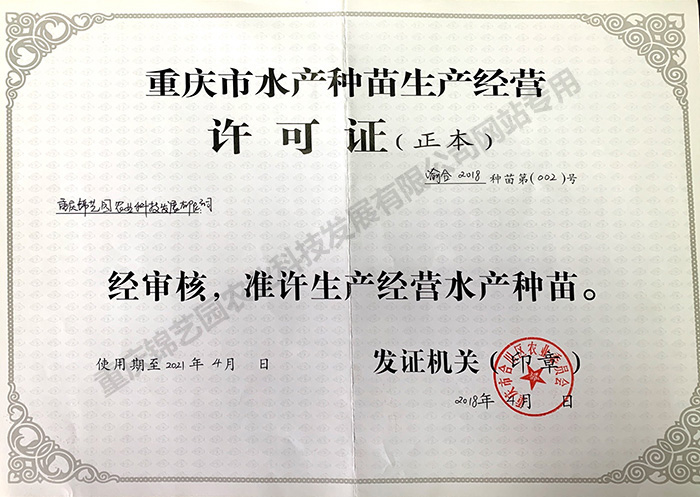 重庆市水产种苗生产经营
许可证(正本)
渝合2018种苗第(002)号
重庆锦艺园农业科技发展有限公司
经审核，准许生产经营水产种苗。
使用期至2021年4月 日
发证机关(印章)
重庆市合川区农业委员会
2018年4月 日
重庆锦艺园农业科技发展有限公司网站专用